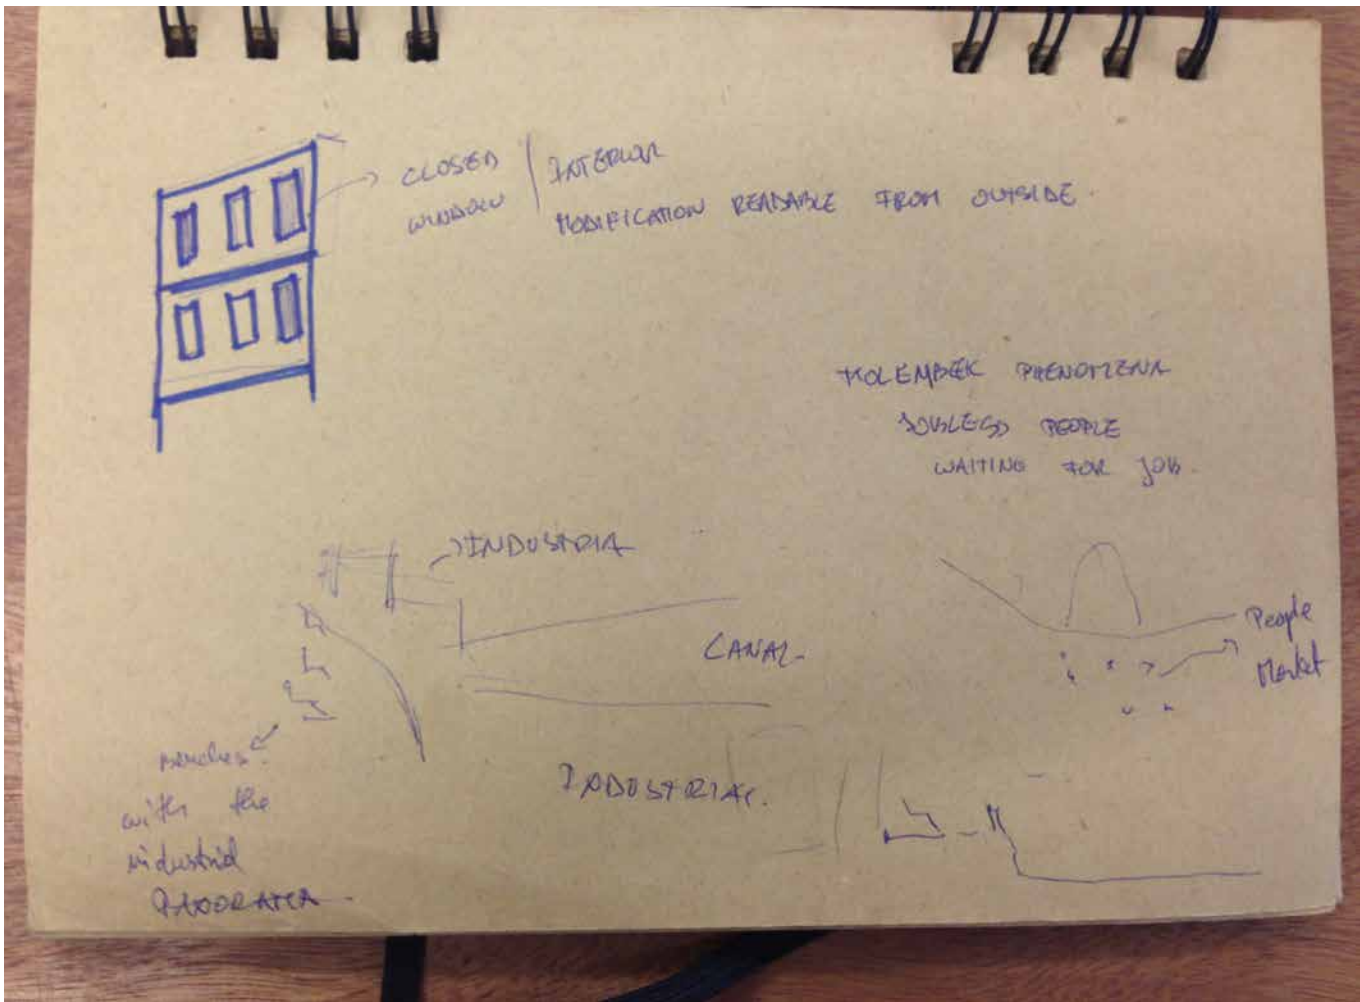 CLOSED / INTERIOR
WINDOW / MODIFICATION READABLE FROM OUTSIDE.
MOLEMBEEK PHENOMENA
JOBLESS PEOPLE
WAITING FOR JOB.
INDUSTRIA
CANAL
People
Market
INDUSTRIAL.
Benches
with the
industrial
PANORAMA.